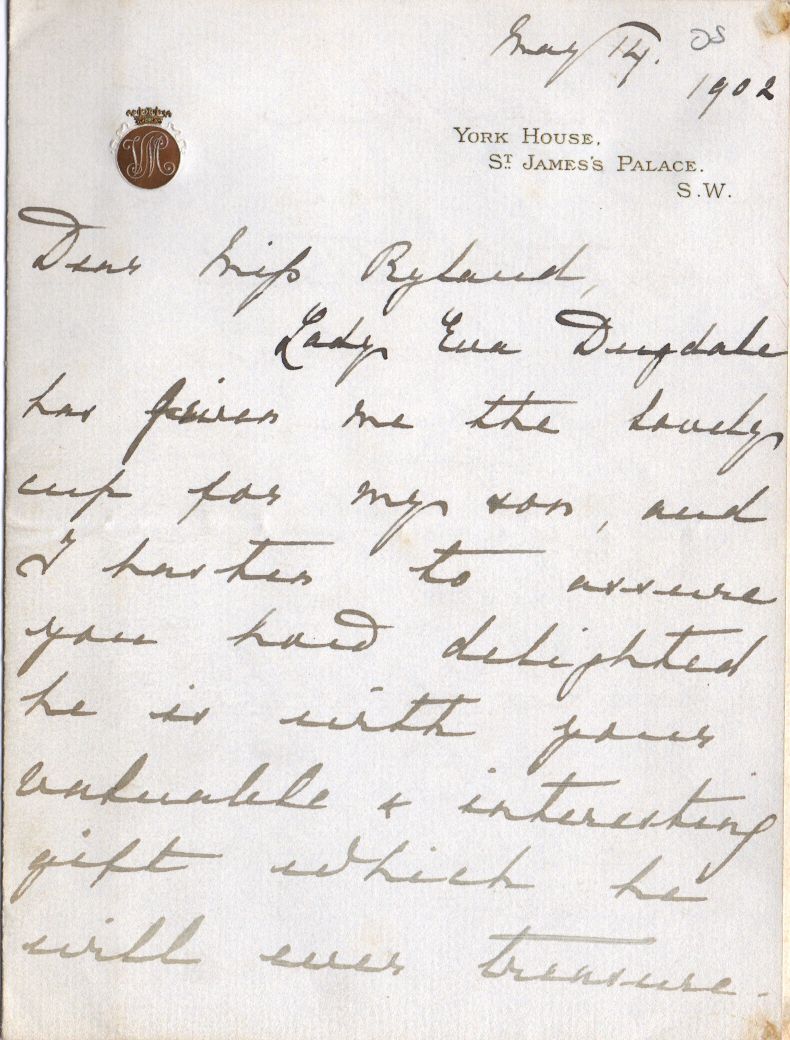 May 14. 1902
YORK HOUSE,
ST JAMES'S PALACE.
S.W.
Dear Miss Ryland,
Lady Eva Dugdale
has given me the lovely
cup for my son, and
I hasten to assure
you how delighted
he is with your
valuable & interesting
gift which he
will ever treasure.